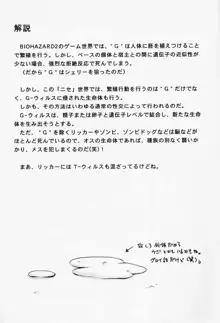 解説
BIOHAZARD2のゲーム世界では、"G"は人体に胚を植えつけることで繁殖を行う。しかし、ベースの個体と宿主との間に遺伝子の近似性が少ない場合、強烈な拒絶反応で死んでしまう。
(だから"G"はシェリーを狙ったのだ)
しかし、この「ニセ」世界では、繁殖行動を行うのは"G"だけでなく、G-ウィルスに侵された生命体も行う。
しかも、その方法はいわゆる通常の性交によって行われるのだ。
G-ウィルスは、精子または卵子と遺伝子レベルで結合し、新たな生命体を生み出そうとする。
ただ、"G"を除くリッカーやゾンビ、ゾンビドッグなどは脳などがほとんど死んでいるので、オスの生命体であれば、種族の別なく襲いかかり、メスを犯しまくるのだ(笑)
まあ、リッカーにはT-ウィルスも混ざってるけどね。